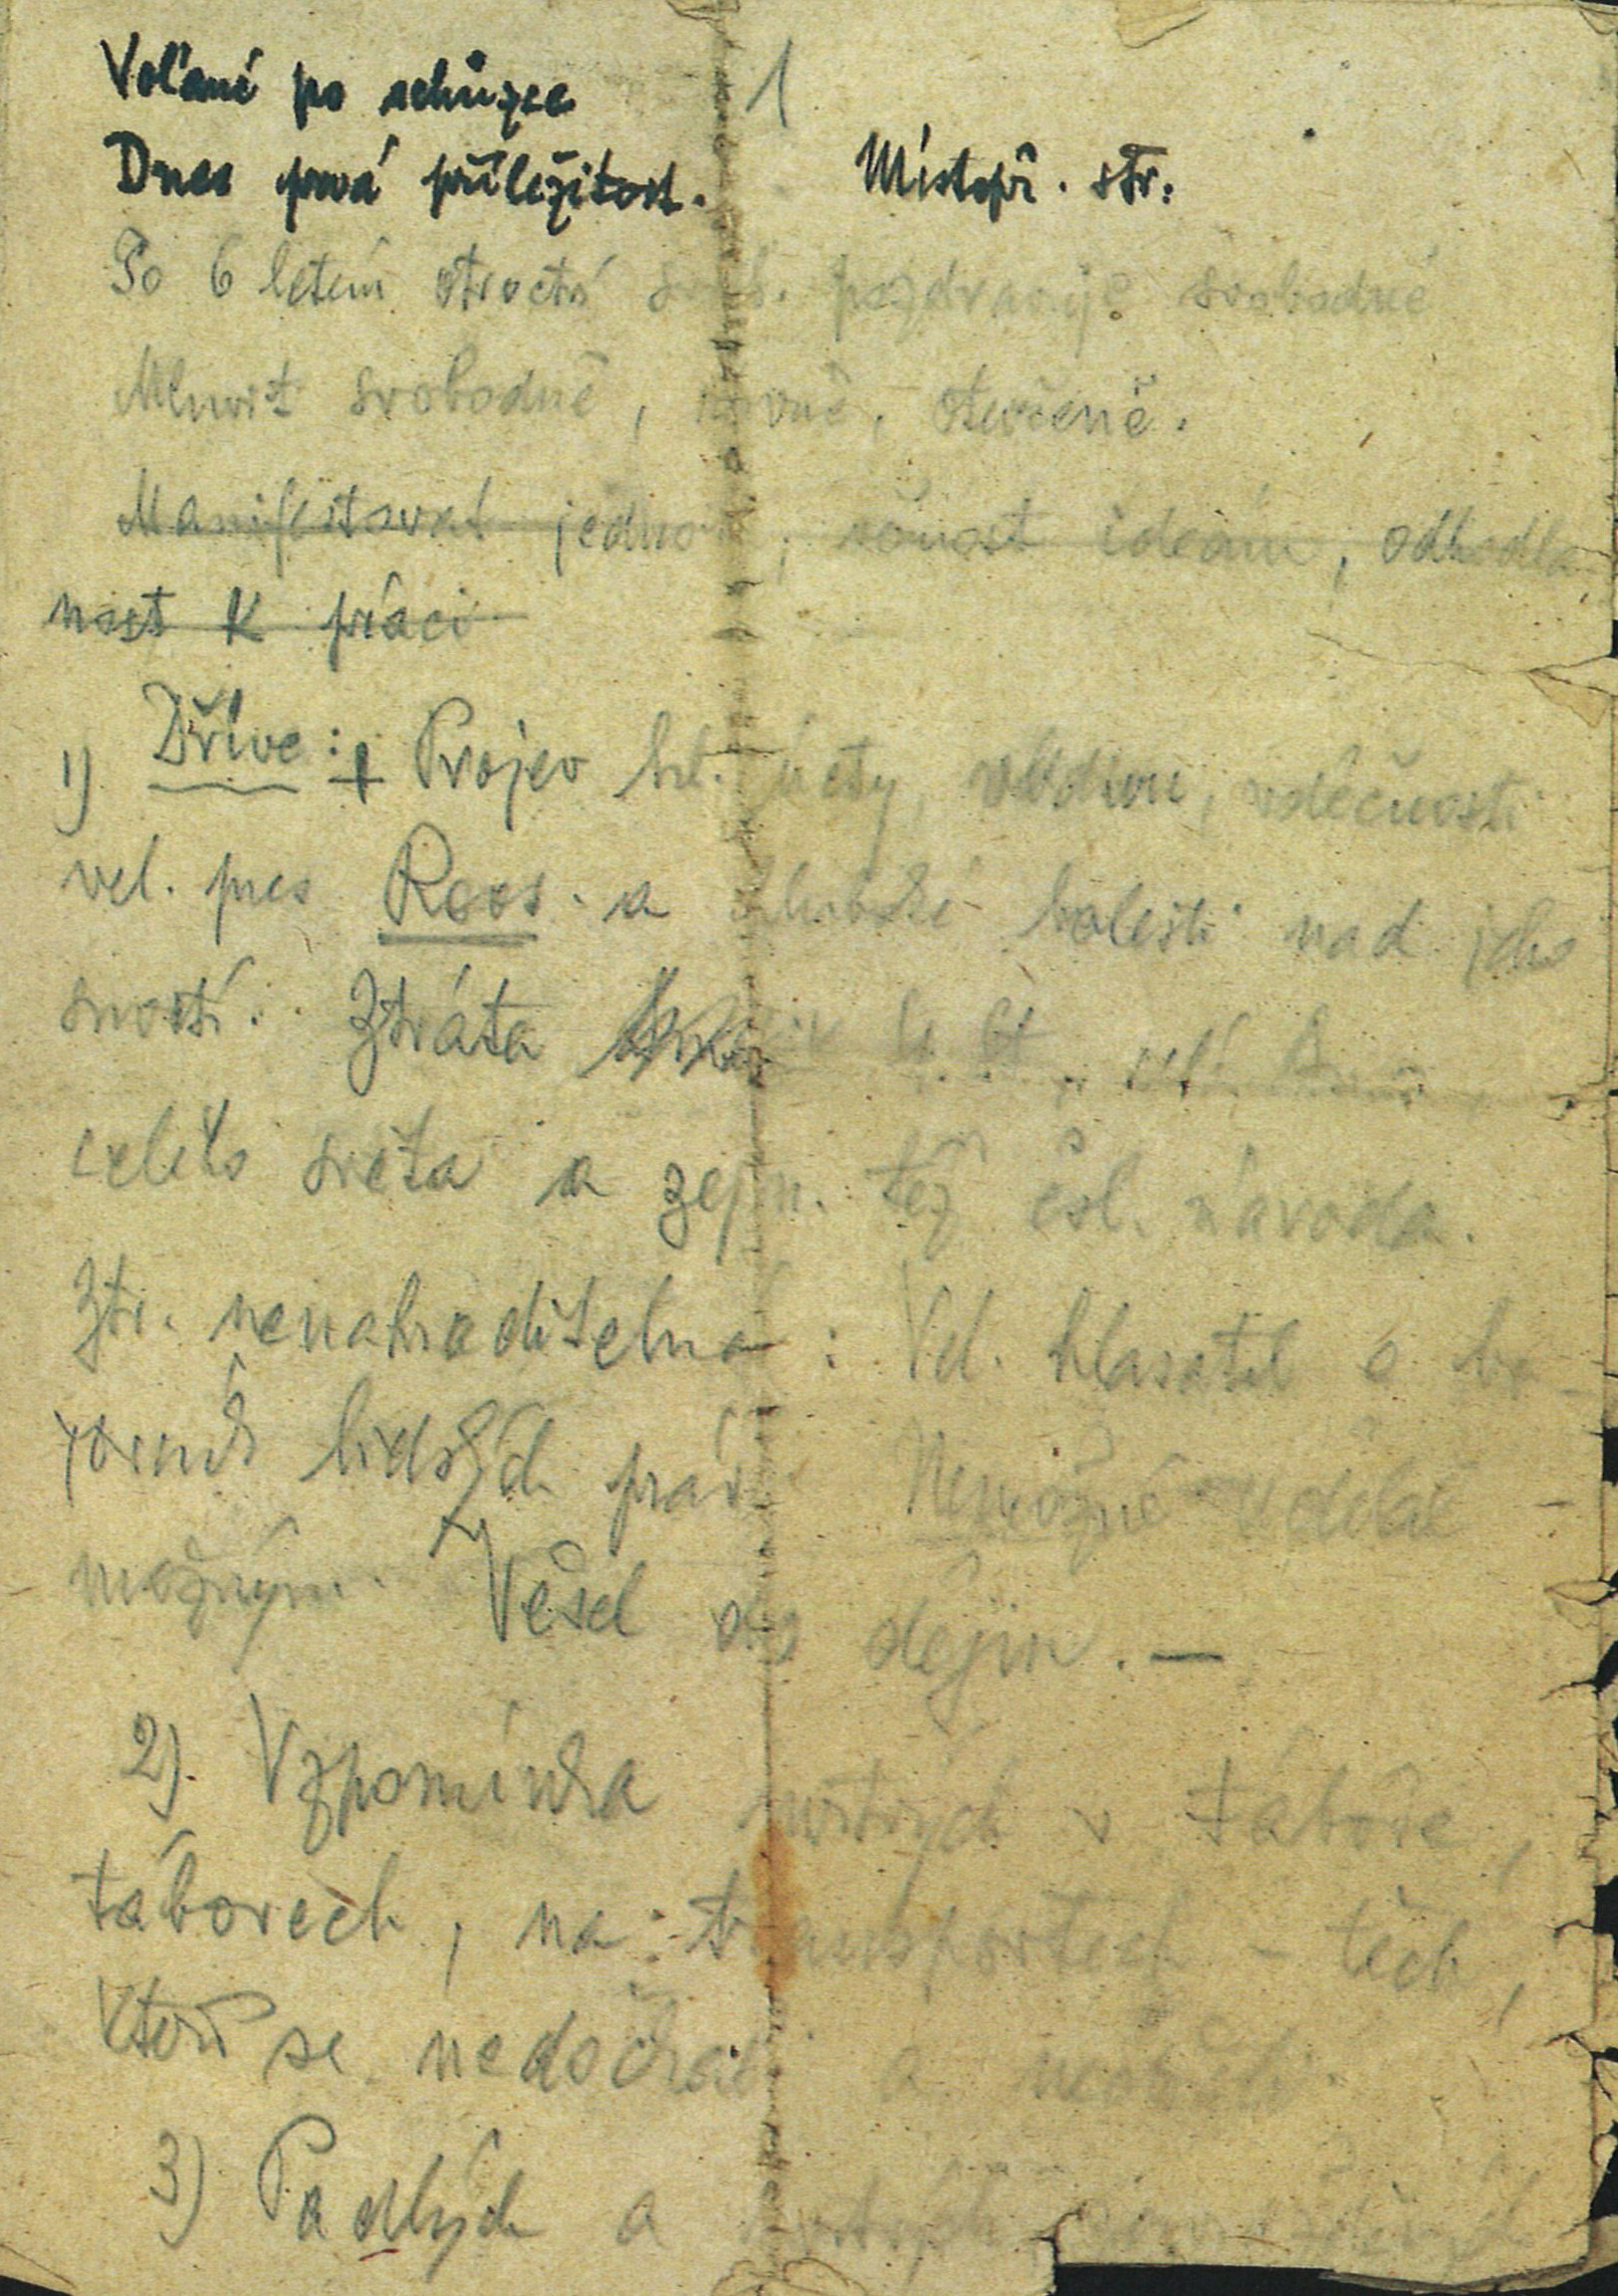 1
Voľané po schůzce
Dnes prvá příležitost. Místopř. stř.
Po 6 letém otroctví pozdravuje svobodné
Mluvit svobodně, rovně, otevřeně.
Manifestovat jednotu, věrnost ideám, odhodla
nost k práci
1) Dříve: + Projev hl. úcty, obdivu, vděčnosti
vel. pres Roos. a hluboké bolesti nad jeho
smrtí. Ztráta U. St.
celého světa a zejm. též čsl. národa.
Ztr. nenahraditelná: Vel. hlasatel a bo-
jovník lidských práv. Nemožné udělal
možným. Věšel do dějin. —
2). Vzpomínka mrtvých v táboře,
táborech, na transportech - těch,
kteří se nedočkali a
3) Padlých a